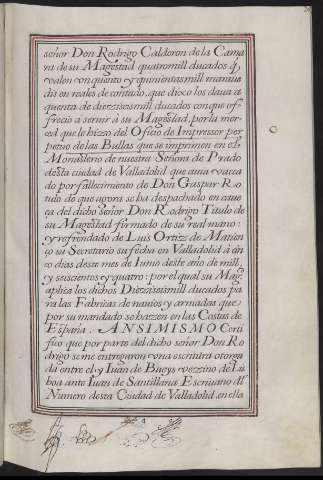 señor Don Rodrigo Calderon de la Cama
ra de su Magestad quatro mill ducados q̃
valen un quento y quinientas mill maraue
dis en reales de contado, que dixo los daua a
quenta de diezi seis mill ducados con que of
frecio a seruir á su Magestad, por la mer
zed que le hizo del Oficio de Impressor per
petuo de las Bullas que se imprimen en el
Monasterio de nuestra Señora de Prado
desta ciudad de Valladolid que aua vaca
do por fallecimiento de Don Gaspar Ro
tulo de que agora se ha despachado en caue
ça del dicho señor Don Rodrigo Titulo de
su Magestad firmado de su real mano:
y refrendado de Luis Ortiz de Matien
ço su Secretario su fecha en Valladolid á cin
co dias deste mes de Iunio deste año de mill,
y seiscientos y quatro: por el qual su Mag.
aplica los dichos Diezi seis mill ducados pa
ra las Fabricas de nauios y armadas que
por su mandado se hazen en las Costas de
España. ANSIMISMO Certi
fico que por parte del dicho señor Don Ro
drigo se me entregaron una escritura otorga
da entre el y Iuan de Bueys vezzino de Lis
boa ante Iuan de Santillana Escriuano dl'
Numero desta Ciudad de Valladolid, en ella